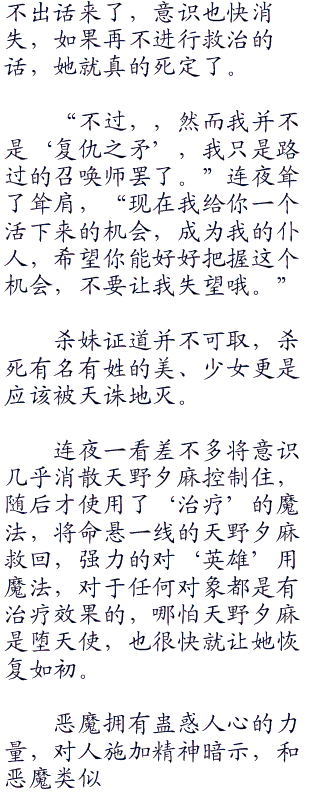 不出话来了，意识也快消
失，如果再不进行救治的
话，她就真的死定了。
“不过，，然而我并不
是‘复仇之矛’，我只是路
过的召唤师罢了。”连夜耸
了耸肩，“现在我给你一个
活下来的机会，成为我的仆
人，希望你能好好把握这个
机会，不要让我失望哦。”
杀妹证道并不可取，杀
死有名有姓的美、少女更是
应该被天诛地灭。
连夜一看差不多将意识
几乎消散天野夕麻控制住，
随后才使用了‘治疗’的魔
法，将命悬一线的天野夕麻
救回，强力的对‘英雄’用
魔法，对于任何对象都是有
治疗效果的，哪怕天野夕麻
是堕天使，也很快就让她恢
复如初。
恶魔拥有蛊惑人心的力
量，对人施加精神暗示，和
恶魔类似